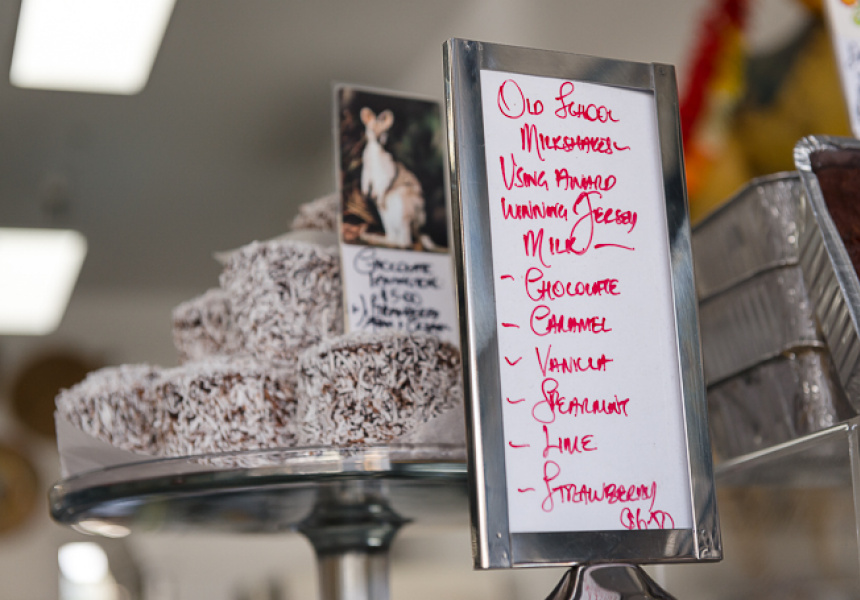 Old School
Milkshakes
Using Award
Winning Jersey
Milk
- Chocolate
- Caramel
- Vanilla
- Spearmint
- Lime
- Strawberry
Chocolate